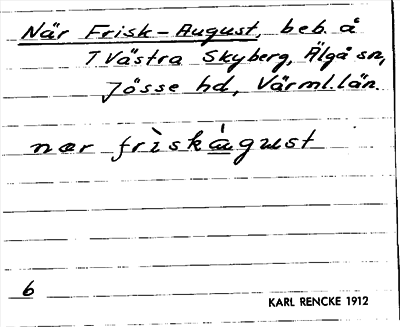 När Frisk-August, beb. å
7 Västra Skyberg, Älgå sn,
Jösse hd, Värml. län.
nær frìskáu̲gust
6
KARL RENCKE 1912